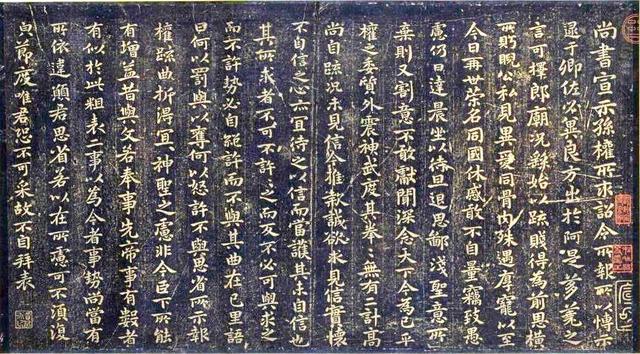 尚書宣示孫權所求詔令所報所以博示
逮于卿佐必冀良方出於阿是芻蕘之
言可擇郎廟況繇始以疏賤得為前恩橫
所盼睨公私見異愛同骨肉殊遇厚寵以至
今日再世榮名同國休慼敢不自量竊致愚
慮仍日達晨坐以待旦退思鄙淺聖意所
棄則又割意不敢獻聞深念天下今為已平
權之委質外震神武度其拳〻無有二計高
尚自疏況未見信今推款誠欲求見信實懷
不自信之心亦宜待之以信而當護其未自信也
其所求者不可不許〻之而反不必可與求之
而不許勢必自絕許而不與其曲在己里語
曰何以罰與以奪何以怒許不與思省所示報
權疏曲折得宜〻神聖之慮非今臣下所能
有增益昔與文若奉事先帝事有數者
有似於此粗表二事以為今者事勢尚當有
所依違願君思省若以在所慮可不須復
貌節度唯君恐不可采故不自拜表